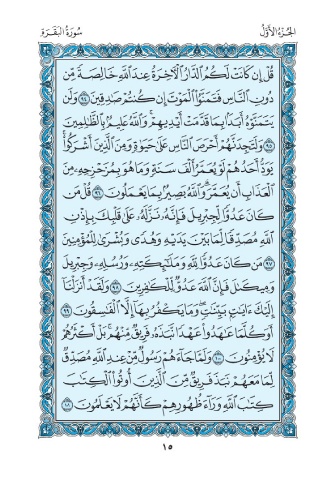 الجزء الأول
سورة البقرة
قُلْ إِن كَانَتْ لَكُمُ ٱلدَّارُ ٱلْـَٔاخِرَةُ عِندَ ٱللَّهِ خَالِصَةً مِّن
دُونِ ٱلنَّاسِ فَتَمَنَّوُا۟ ٱلْمَوْتَ إِن كُنتُمْ صَـٰدِقِينَ ٩٤ وَلَن
يَتَمَنَّوْهُ أَبَدًۢا بِمَا قَدَّمَتْ أَيْدِيهِمْ ۗ وَٱللَّهُ عَلِيمٌۢ بِٱلظَّـٰلِمِينَ
٩٥ وَلَتَجِدَنَّهُمْ أَحْرَصَ ٱلنَّاسِ عَلَىٰ حَيَوٰةٍ وَمِنَ ٱلَّذِينَ أَشْرَكُوا۟ ۚ
يَوَدُّ أَحَدُهُمْ لَوْ يُعَمَّرُ أَلْفَ سَنَةٍ وَمَا هُوَ بِمُزَحْزِحِهِۦ مِنَ
ٱلْعَذَابِ أَن يُعَمَّرَ ۗ وَٱللَّهُ بَصِيرٌۢ بِمَا يَعْمَلُونَ ٩٦ قُلْ مَن
كَانَ عَدُوًّا لِّجِبْرِيلَ فَإِنَّهُۥ نَزَّلَهُۥ عَلَىٰ قَلْبِكَ بِإِذْنِ
ٱللَّهِ مُصَدِّقًا لِّمَا بَيْنَ يَدَيْهِ وَهُدًى وَبُشْرَىٰ لِلْمُؤْمِنِينَ
٩٧ مَن كَانَ عَدُوًّا لِّلَّهِ وَمَلَـٰٓئِكَتِهِۦ وَرُسُلِهِۦ وَجِبْرِيلَ
وَمِيكَىٰلَ فَإِنَّ ٱللَّهَ عَدُوٌّ لِّلْكَـٰفِرِينَ ٩٨ وَلَقَدْ أَنزَلْنَآ
إِلَيْكَ ءَايَـٰتٍۭ بَيِّنَـٰتٍ ۖ وَمَا يَكْفُرُ بِهَآ إِلَّا ٱلْفَـٰسِقُونَ ٩٩
أَوَكُلَّمَا عَـٰهَدُوا۟ عَهْدًا نَّبَذَهُۥ فَرِيقٌ مِّنْهُم ۚ بَلْ أَكْثَرُهُمْ
لَا يُؤْمِنُونَ ١٠٠ وَلَمَّا جَآءَهُمْ رَسُولٌ مِّنْ عِندِ ٱللَّهِ مُصَدِّقٌ
لِّمَا مَعَهُمْ نَبَذَ فَرِيقٌ مِّنَ ٱلَّذِينَ أُوتُوا۟ ٱلْكِتَـٰبَ
كِتَـٰبَ ٱللَّهِ وَرَآءَ ظُهُورِهِمْ كَأَنَّهُمْ لَا يَعْلَمُونَ ١٠١
١٥